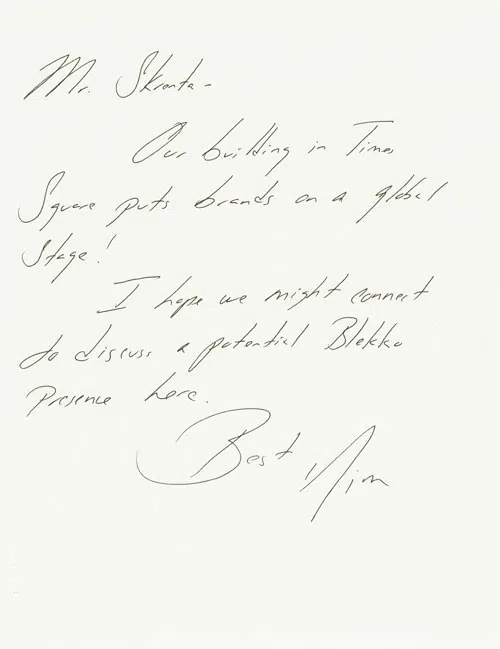 Mr. Skrenta-
Our building in Times
Square puts brands on a global
Stage!
I hope we might connect
to discuss a potential Blekko
Presence here.
Best